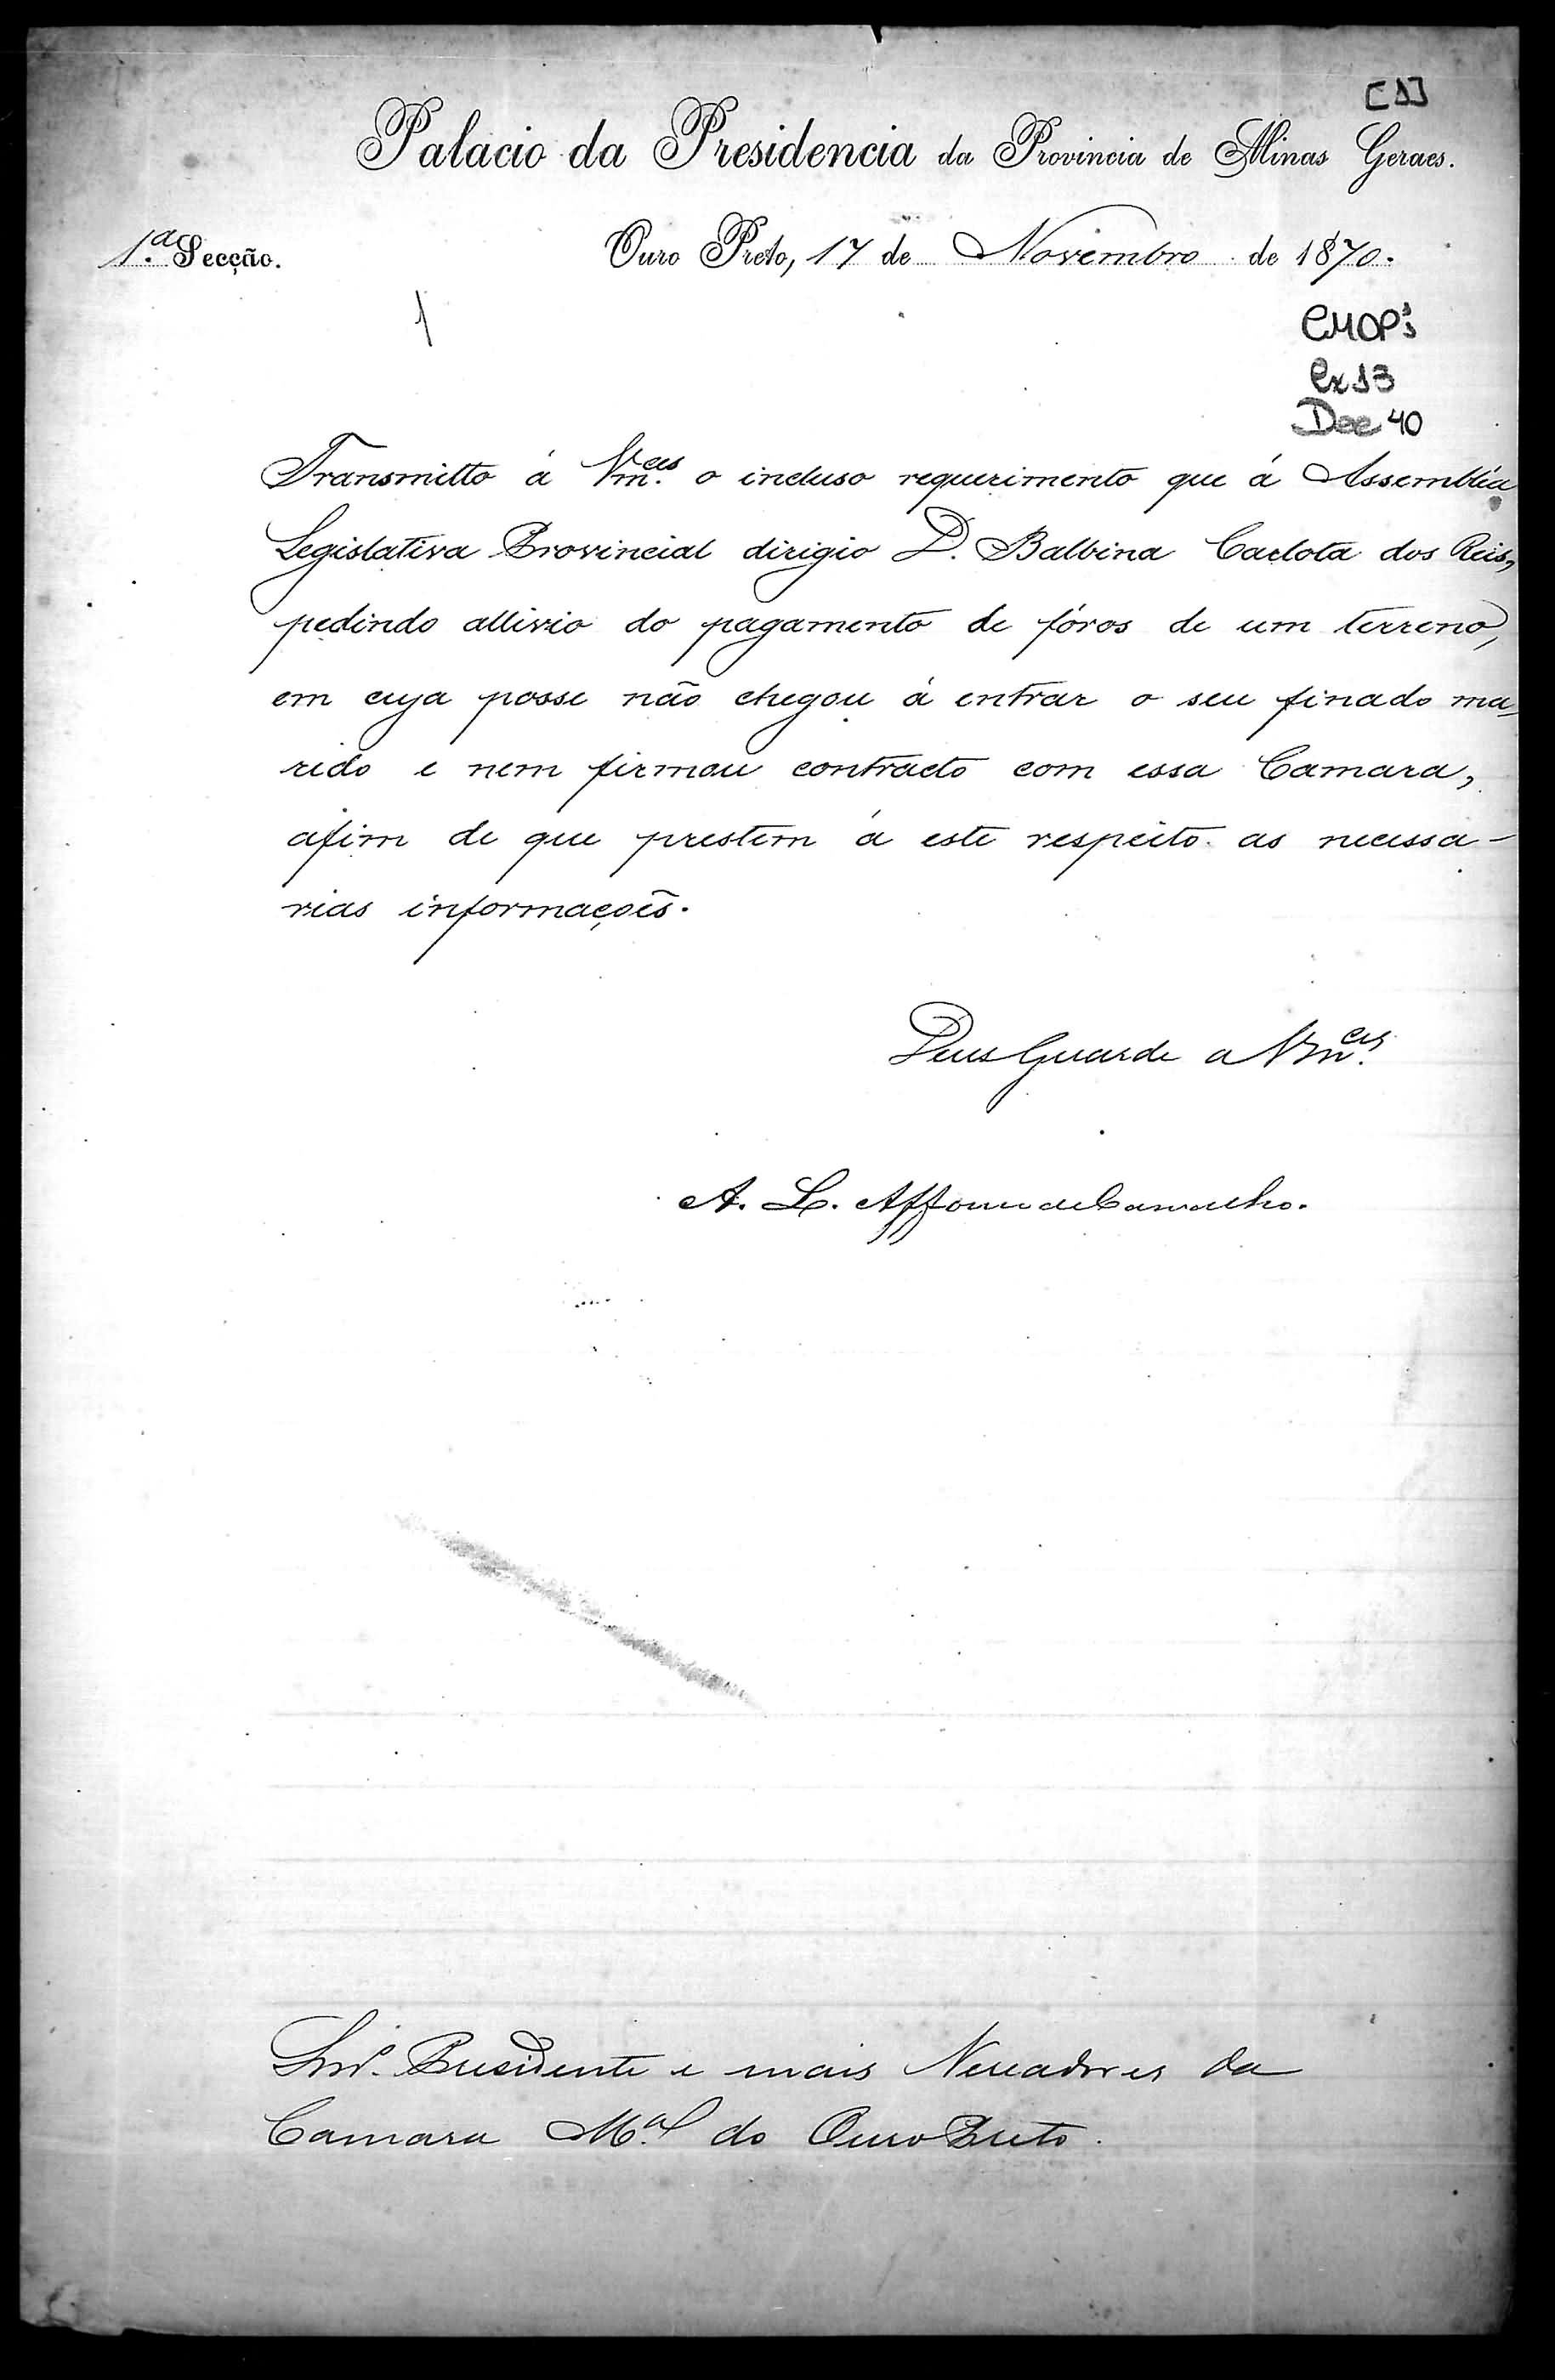 [1]
Palacio da Presidencia da Provincia de Minas Geraes.
1.ª Secção.
Ouro Preto, 17 de Novembro de 1870.
1
CMOP
Cx 13
Doc 40
Transmitto á Vm.ces o incluso requerimento que á Assembléa
Legislativa Provincial dirigio D. Balbina Carlota dos Reis,
pedindo allivio do pagamento de fóros de um terreno,
em cuja posse não chegou á entrar o seu finado ma-
rido e nem firmou contracto com essa Camara,
afim de que prestem á este respeito as necessa-
rias informações.
Deus Guarde a Vm.ces
A. L. Affonso de Carvalho.
Snr. Presidente e mais Vereadores da
Camara M.al do Ouro Preto.